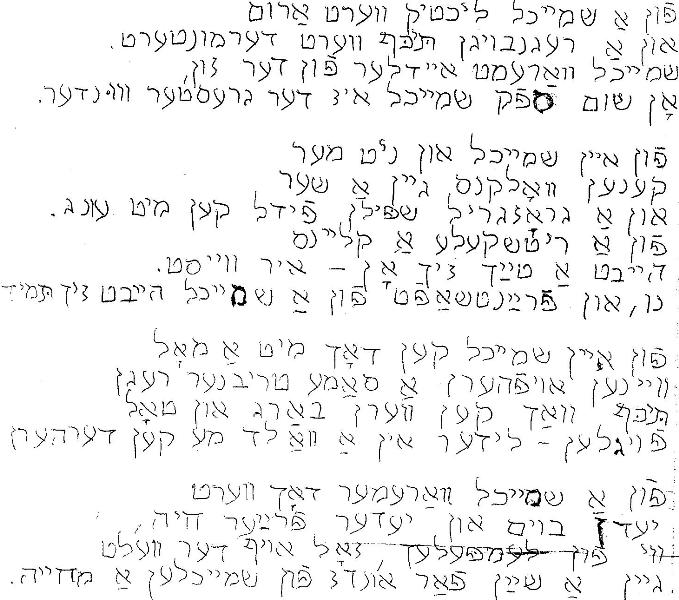 פֿון אַ שמייכל ליכטיק ווערט אַרום
און אַ רעגנבויגן תּיכּף ווערט דערמונטערט.
שמייכל וואַרעמט איידלער פֿון דער זון,
אָן שום ספֿק שמייכל איז דער גרעסטער וווּנדער.
פֿון איין שמייכל און ניט מער
קענען וואָלקנס גיין אַ שער
און אַ גראָזגריל שפּילן פֿידל קען מיט עונג.
פֿון אַ ריטשקעלע אַ קליינס
הייבט אַ טײַך זיך אָן – איר ווייסט.
נו, און פֿרײַנטשאַפֿט פֿון אַ שמייכל הייבט זיך תּמיד
פֿון איין שמייכל קען דאָך מיט אַ מאָל
וויינען אויפֿהערן אַ סאַמע טריבנער רעגן
תּיכּף וואַך קען ווערן באַרג און טאָל
פֿויגלען – לידער אין אַ וואַלד מע קען דערהערן
פֿון אַ שמייכל וואַרעמער דאָך ווערט
יעדן בוים און יעדער פֿרײַער חיה,
ווי פֿון לעמפּעלעך, זאָל אויף דער וועלט
גיין אַ שײַן פֿאַר אונדז פֿון שמייכלען אַ מחייה.